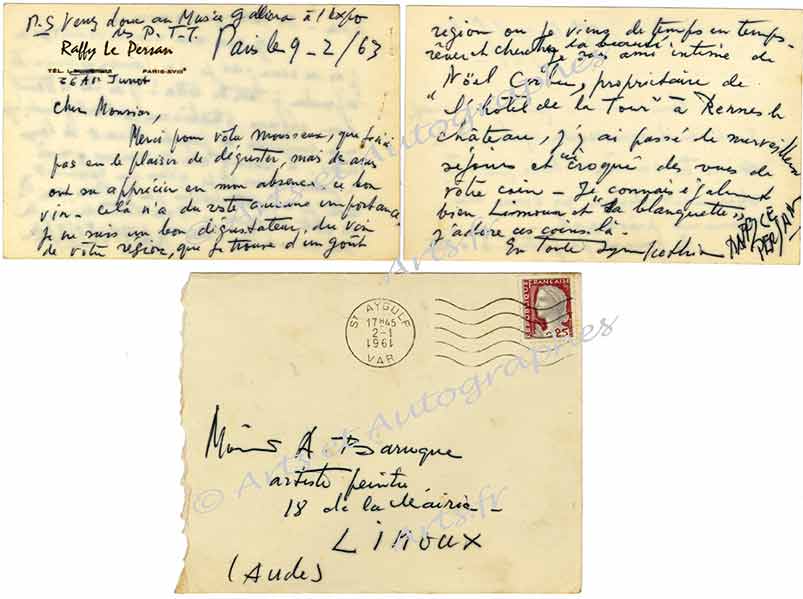 P.S Venez donc au Musée Galliera à l'Expo
des P.T.T.
Raffy Le Persan
Paris le 9-2/63
TÉL. PARIS-XVIIIe
26 Av Junot
Cher Monsieur,
Merci pour votre mousseux, que je n'ai
pas eu le plaisir de déguster, mais de amis
ont su apprécier en mon absence ce bon
vin - Celà n'a du reste aucune importance
je ne suis un bon dégustateur, du vin
de votre région, que je trouve d'un goût
région où je viens de temps en temps
rêver et chercher la beauté
Je suis ami intime de
Noël Corbu, propriétaire de
"l'hôtel de la Tour" à Rennes le
château, j'y ai passé de merveilleux
séjours et croqué des vues de
votre coin - Je connais également
bien Limoux et "la blanquette"
j'adore ces coins là.
En toute sympathie
LE PERSAN
ST AYGULF
17H45
2-1
1961
VAR
RÉPUBLIQUE FRANÇAISE
0,25
A Barruque
artiste peintre
18 de la Mairie -
LIMOUX
(Aude)
© Arts et Autographes
Arts.fr